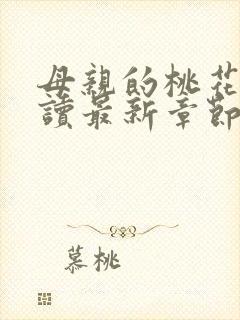 母親的桃花
讀最新章節
慕桃